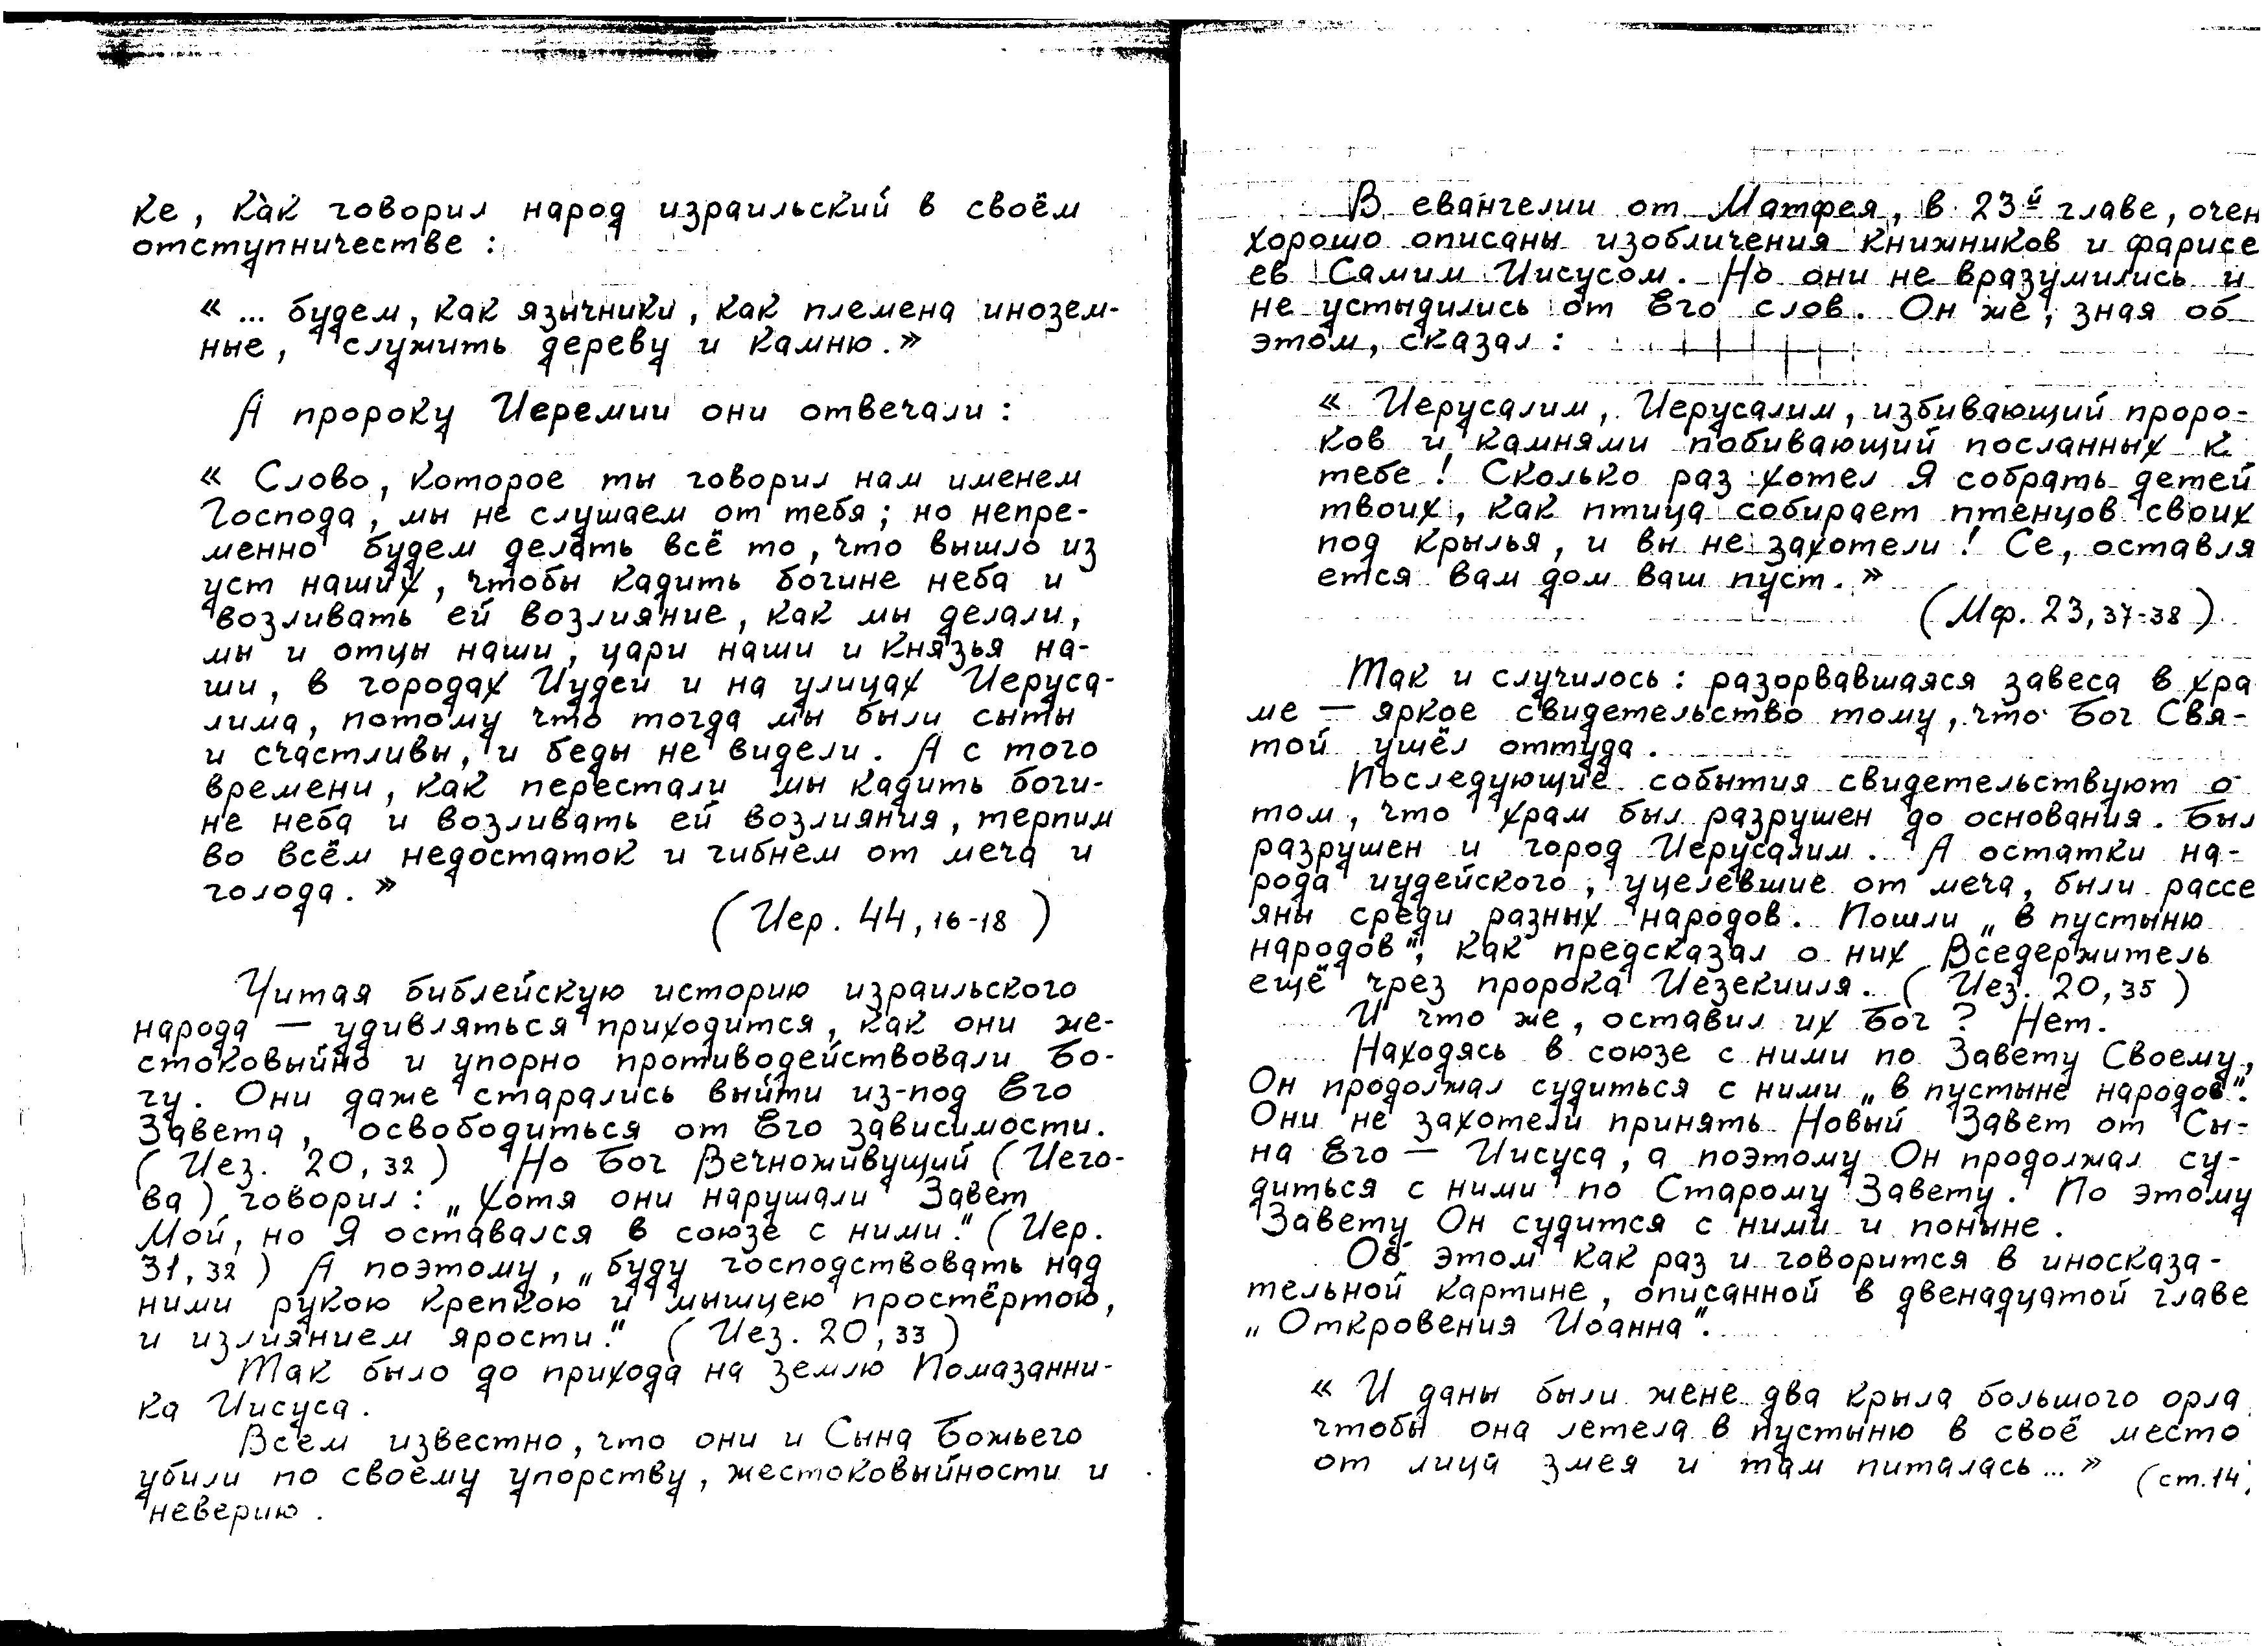 ке, как говорил народ израильский в своём
отступничестве:
« ... будем, как язычники, как племена инозем-
ные, служить дереву и камню.»
А пророку Иеремии они отвечали:
« Слово, которое ты говорил нам именем
Господа, мы не слушаем от тебя; но непре-
менно будем делать всё то, что вышло из
уст наших, чтобы кадить богине неба и
возливать ей возлияние, как мы делали,
мы и отцы наши, цари наши и князья на-
ши, в городах Иудеи и на улицах Иеруса-
лима, потому что тогда мы были сыты
и счастливы, и беды не видели. А с того
времени, как перестали мы кадить боги-
не неба и возливать ей возлияния, терпим
во всём недостаток и гибнем от меча и
голода.»
(Иер. 44, 16-18)
Читая библейскую историю израильского
народа — удивляться приходится, как они же-
стоковыйно и упорно противодействовали Бо-
гу. Они даже старались выйти из-под Его
Завета, освободиться от Его зависимости.
(Иез. 20, 32) Но Бог Вечноживущий (Иего-
ва) говорил: „Хотя они нарушали Завет
Мой, но Я оставался в союзе с ними." (Иер.
31, 32) А поэтому, „буду господствовать над
ними рукою крепкою и мышцею простёртою,
и излиянием ярости." (Иез. 20, 33)
Так было до прихода на землю Помазанни-
ка Иисуса.
Всем известно, что они и Сына Божьего
убили по своему упорству, жестоковыйности и
неверию.
В евангелии от Матфея, в 23й главе, очен
хорошо описаны изобличения книжников и фарисе
ев Самим Иисусом. Но они не вразумились и
не устыдились от Его слов. Он же, зная об
этом, сказал:
« Иерусалим, Иерусалим, избивающий проро-
ков и камнями побивающий посланных к
тебе! Сколько раз хотел Я собрать детей
твоих, как птица собирает птенцов своих
под крылья, и вы не захотели! Се, оставля
ется вам дом ваш пуст.»
(Мф. 23, 37-38)
Так и случилось: разорвавшаяся завеса в хра
ме — яркое свидетельство тому, что Бог Свя-
той ушёл оттуда.
Последующие события свидетельствуют о
том, что храм был разрушен до основания. Был
разрушен и город Иерусалим. А остатки на-
рода иудейского, уцелевшие от меча, были рассе
яны среди разных народов. Пошли „в пустыню
народов", как предсказал о них Вседержитель
ещё чрез пророка Иезекииля. (Иез. 20, 35)
И что же, оставил их Бог? Нет.
Находясь в союзе с ними по Завету Своему,
Он продолжал судиться с ними „в пустыне народов".
Они не захотели принять Новый Завет от Сы-
на Его — Иисуса, а поэтому Он продолжал су-
диться с ними по Старому Завету. По этому
Завету Он судится с ними и поныне.
Об этом как раз и говорится в иносказа-
тельной картине, описанной в двенадцатой главе
„Откровения Иоанна".
« И даны были жене два крыла большого орла
чтобы она летела в пустыню в своё место
от лица змея и там питалась...» (ст. 14)